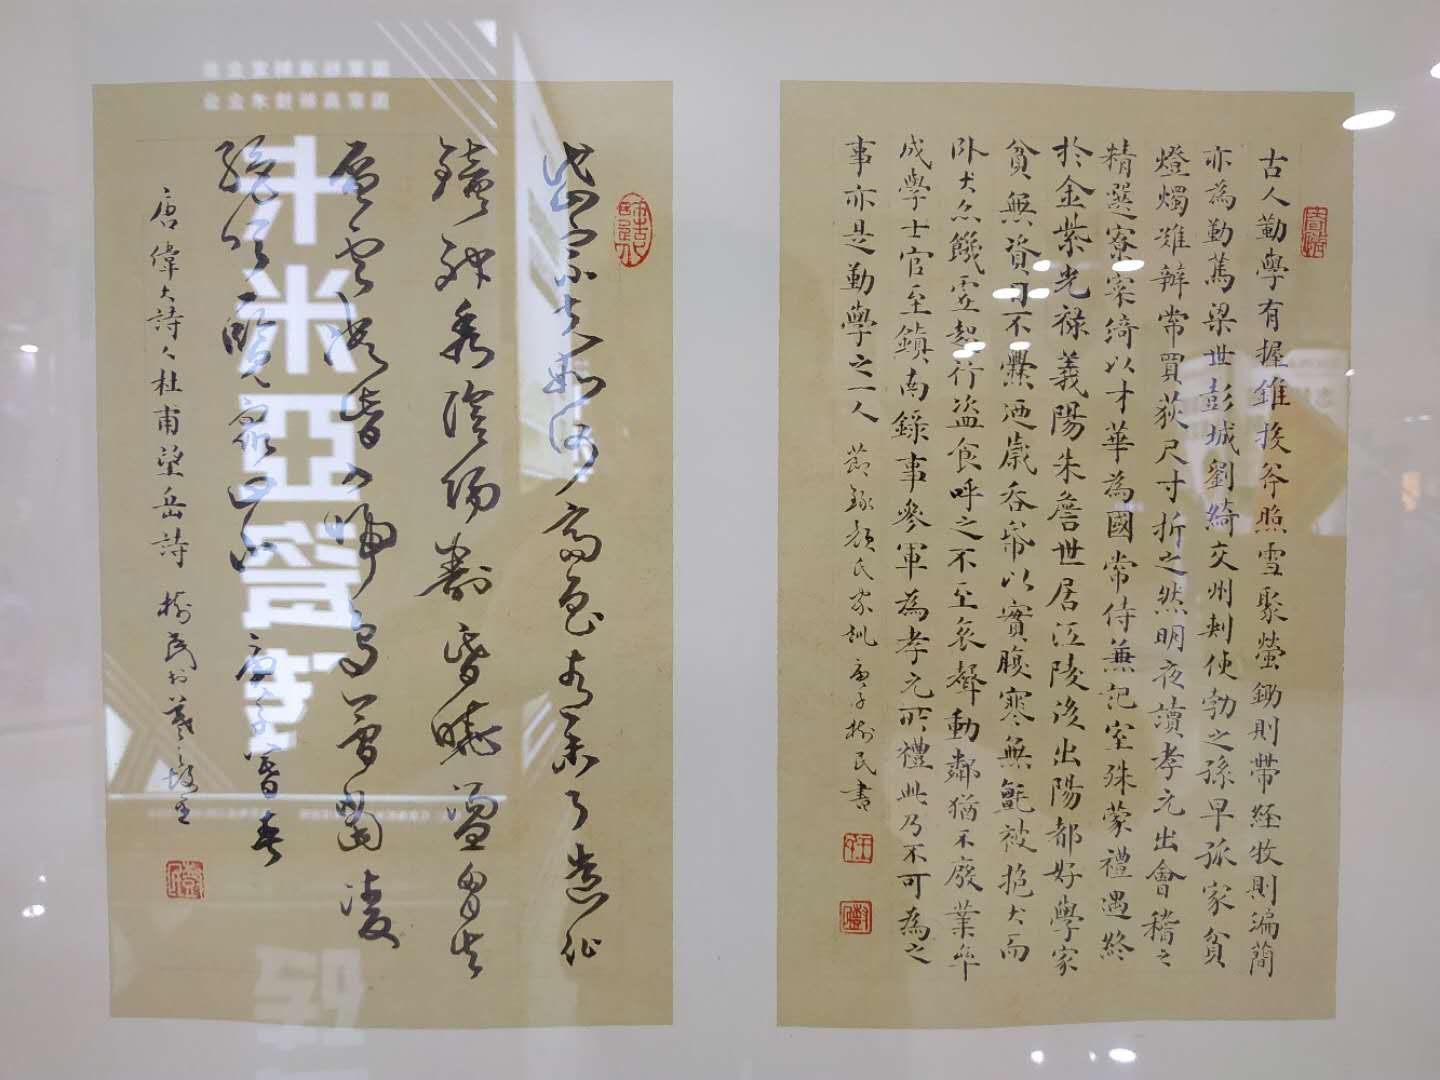 古人勤學有握錐投斧照雪聚螢鋤則帶經牧則編簡
亦為勤篤梁世彭城劉綺交州刺使勃之孫早孤家貧
燈燭難辦常買荻尺寸折之然明夜讀孝元出會稽之
精選寮寀綺以才華為國常侍兼記室殊蒙禮遇終
於金紫光祿義陽朱詹世居江陵後出陽都好學家
貧無資日不爨迺歲吞帋以實腹寒無氈被抱犬而
卧犬亦饑虛起行盜食呼之不至哀聲動鄰猶不廢業卒
成學士官至鎮南錄事參軍為孝元所禮此乃不可為之
事亦是勤學之一人 節錄顏氏家訓 庚子樹民書
岱宗夫如何齊魯青未了造化
鍾神秀陰陽割昏曉盪胸生
層雲決眥入歸鳥會當凌
絕頂一覽眾山小 庚子暮春
唐偉大詩人杜甫望岳詩 樹民於羲之故里